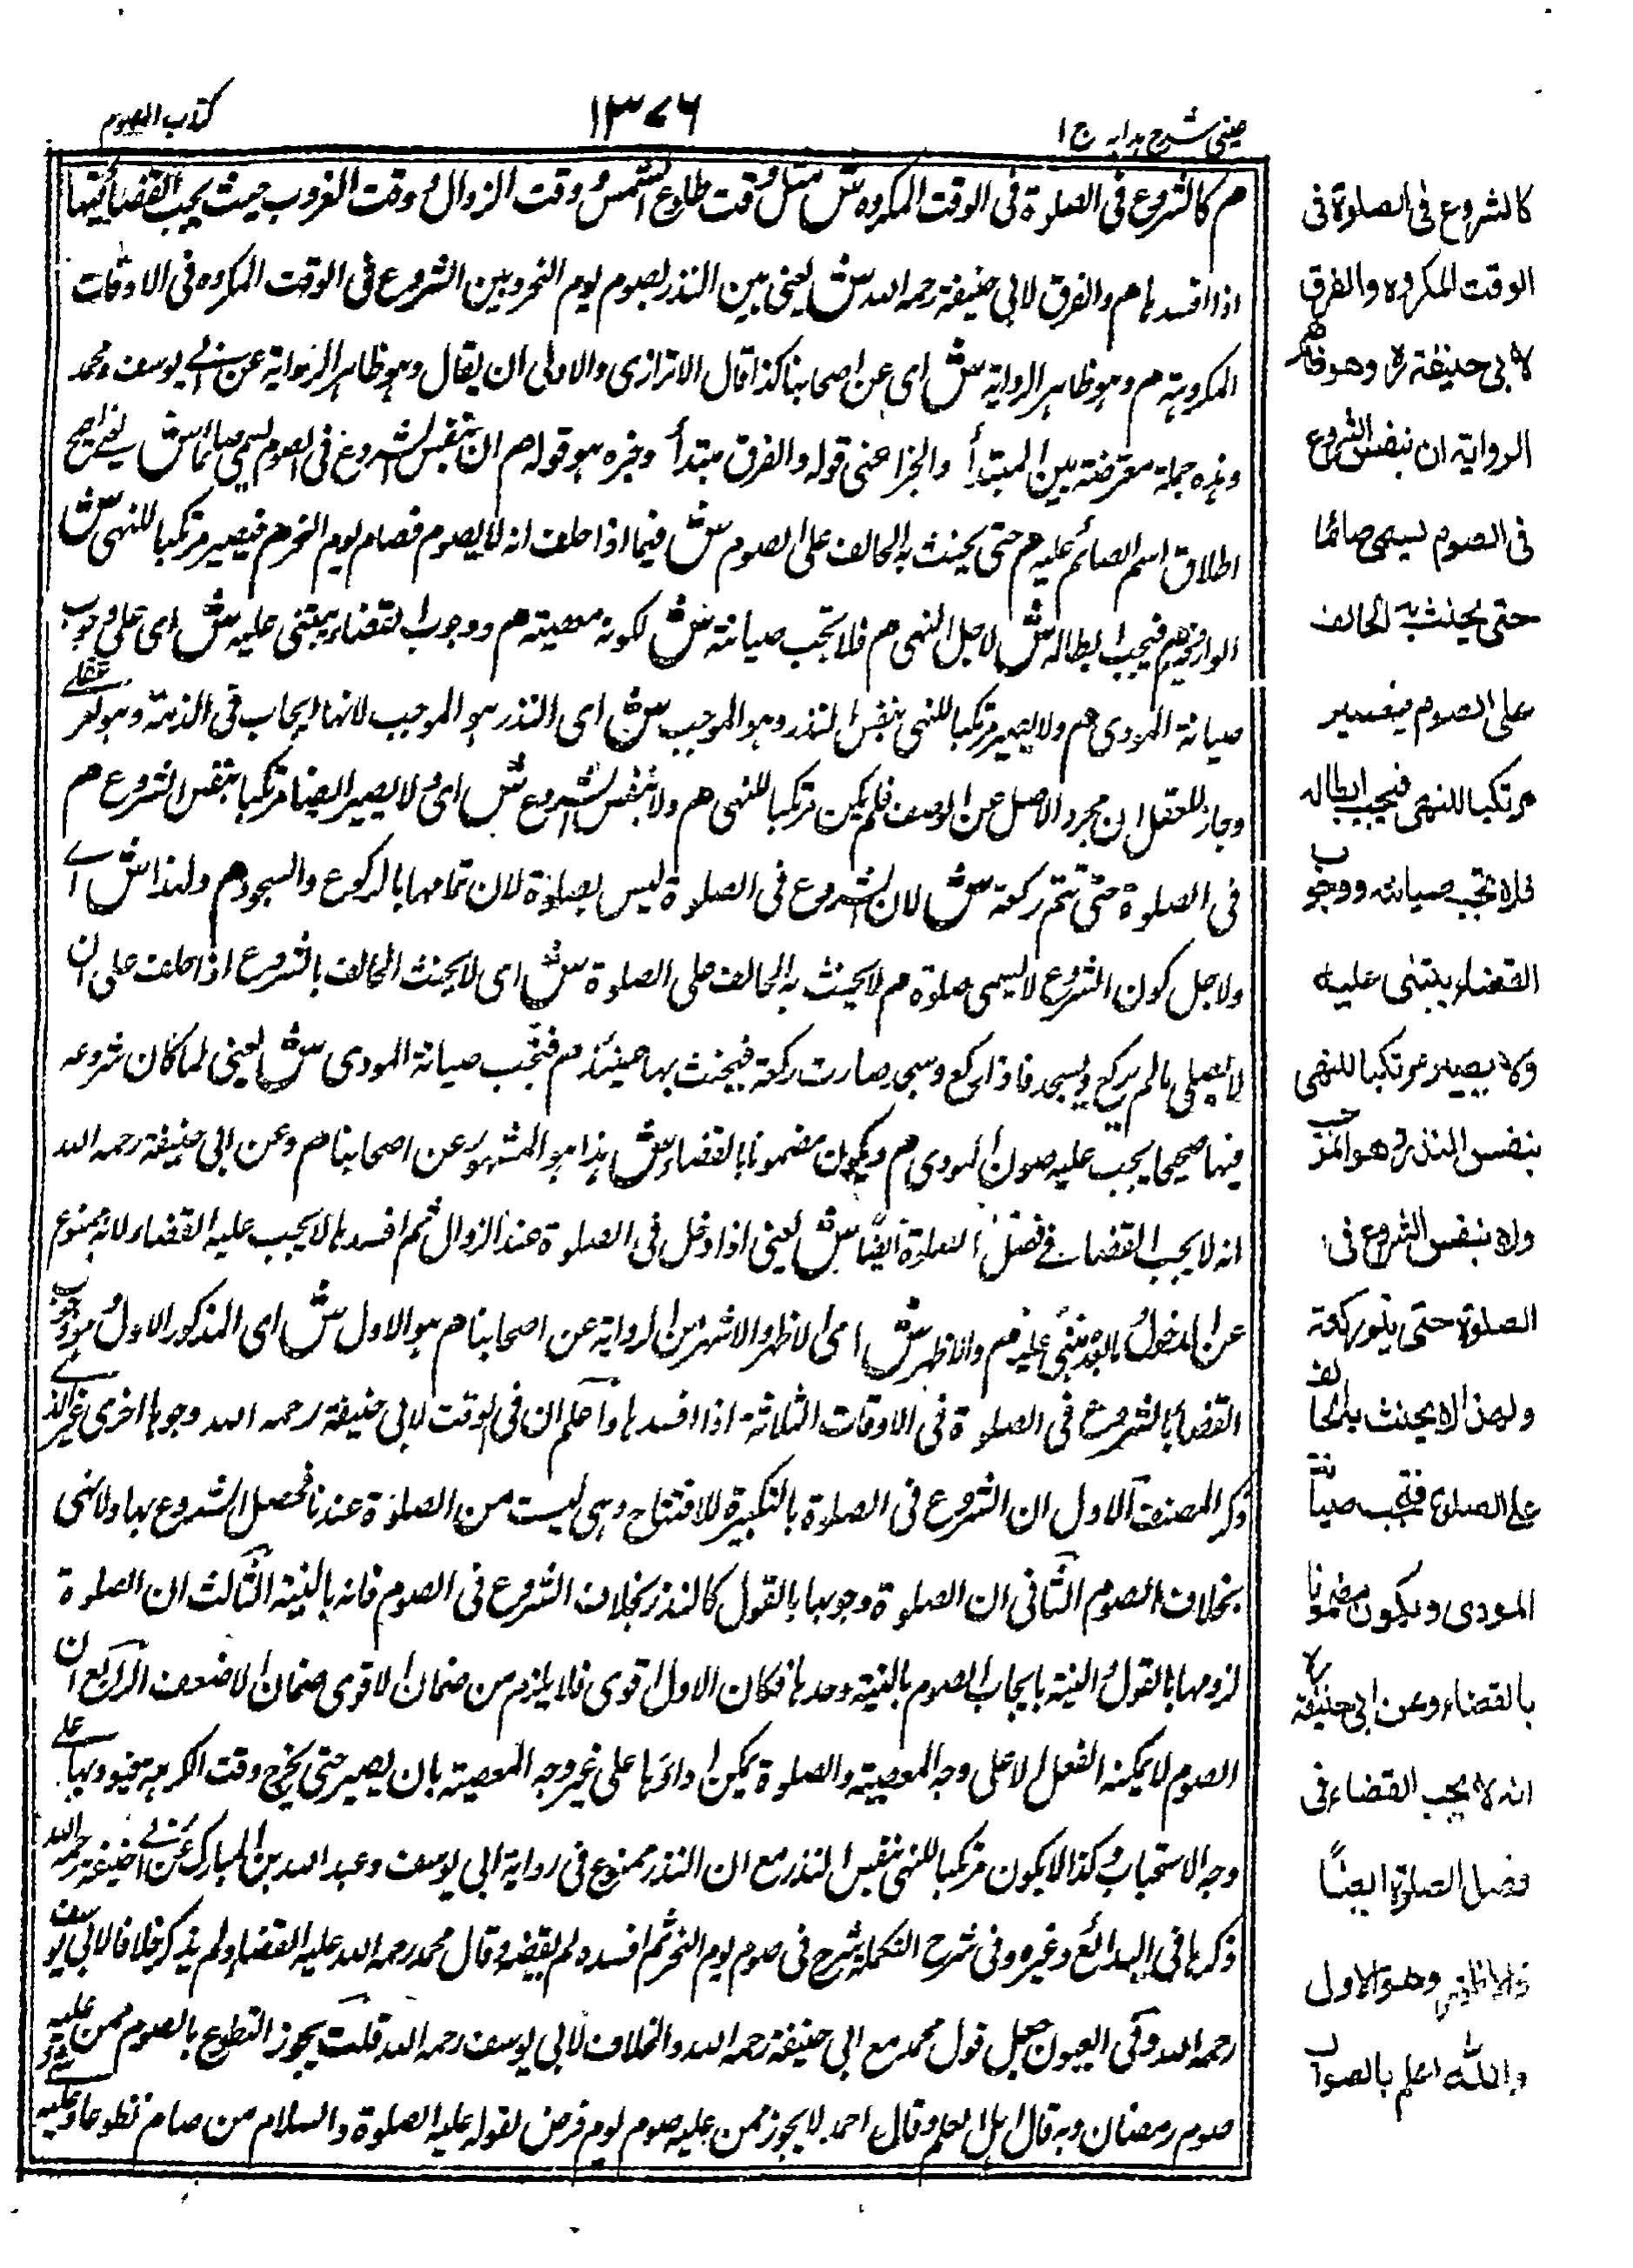 عینی شرح ہدایہ ج ا
١٣٧٦
كتاب الصوم
م كالشروع فى الصلوة فى الوقت المكروه ش مثل وقت طلوع الشمس ووقت الزوال ووقت الغروب حيث يجب القضاء فيها
اذا افسدها م والفرق لابى حنيفة رحمه الله ش يعنى بين النذر لصوم يوم النحر وبين الشروع فى الوقت المكروه فى الاوقات
المكروهة م وهو ظاهر الرواية ش اى عن اصحابنا كذا قال الاترازى والاولى ان يقال وهو ظاهر الرواية عن ابى يوسف ومحمد
وهذه جملة معترضة بين المبتدأ والخبر اعنى قوله والفرق مبتدأ وخبره هو قوله م ان بنفس الشروع فى الصوم يسمى صائما ش
اطلاق اسم الصائم عليه م حتى يحنث به الحالف على الصوم ش فيما اذا حلف انه لا يصوم فصام يوم النحر م فيصير مرتكبا للنهى ش
م فيجب ابطاله ش لاجل النهى م فلا تجب صيانته ش لكونه معصية م ووجوب القضاء يبتنى عليه ش اى على وجوب
صيانة المودى م ولا يصير مرتكبا للنهى بنفس النذر وهو الموجب ش اى النذر هو الموجب لانها ايجاب فى الذمة وهو
وجاز للعقل ان مجرد الاصل عن الوصف فلم يكن مرتكبا للنهى م ولا بنفس الشروع ش اى ولا يصير ايضا مرتكبا بنفس الشروع م
فى الصلوة حتى تتم ركعة ش لان الشروع فى الصلوة ليس بصلوة لان تمامها بالركوع والسجود م ولهذا ش اى
ولاجل كون الشروع لا يسمى صلوة م لا يحنث به الحالف على الصلوة ش اى لا يحنث الحالف بالشروع اذا حلف على ان
لا يصلى مالم يركع ويسجد فاذا ركع وسجد صارت ركعة فيحنث بها حينئذ م فتجب صيانة المودى ش يعنى لما كان شروعه
فيها صحيحا يجب عليه صون المودى م ويكون مضمونا بالقضاء ش هذا هو المشهور عن اصحابنا م وعن ابى حنيفة رحمه الله
انه لا يجب القضاء فى فصل الصلوة ايضا ش يعنى اذا دخل فى الصلوة عند الزوال ثم افسدها لا يجب عليه القضاء لانه ممنوع
عن الدخول م والاظهر ش اى الاظهر والاشهر من الرواية عن اصحابنا م هو الاول ش اى المذكور الاول وهو وجوب
القضاء بالشروع فى الصلوة فى الاوقات الثلاثة اذا افسدها واعلم ان فى الوقت لابى حنيفة رحمه الله وجوها اخرى غير الذى
ذكر المصنف الاول ان الشروع فى الصلوة بالتكبيرة للافتتاح وهى ليست من الصلوة عندنا فحصل الشروع بها ولا نهى
بخلاف الصوم الثانى ان الصلوة وجوبها بالقول كالنذر بخلاف الشروع فى الصوم فانه بالنية الثالث ان الصلوة
لزومها بالقول والنية بايجاب الصوم بالنية وحدها فكان الاول اقوى فلا يلزم من ضمان الاقوى ضمان الاضعف الرابع ان
الصوم لا يمكنه الفعل الا على وجه المعصية والصلوة يمكن اداؤها على غير وجه المعصية بان يصبر حتى يخرج وقت الكراهة فيؤديها على
وجه الاستحباب وكذا لا يكون مرتكبا للنهى بنفس النذر مع ان النذر ممنوع فى رواية ابى يوسف وعبد الله بن المبارك عن ابى حنيفة رحمه الله
ذكرها فى البدائع وغيره وفى شرح التكملة شرع فى صوم يوم النحر ثم افسده لم يقضه وقال محمد رحمه الله عليه القضاء ولم يذكر خلافا لابى يوسف
رحمه الله وفى العيون جعل قول محمد مع ابى حنيفة رحمه الله والخلاف لابى يوسف رحمه الله قلت يجوز التطوع بالصوم ممن عليه
صوم رمضان وبه قال اهل العلم وقال احمد لا يجوز ممن عليه صوم يوم فرض لقوله عليه الصلوة والسلام من صام تطوعا وعليه
كالشروع فى الصلوة فى
الوقت المكروه والفرق
لابى حنيفة رح وهو ظاهر
الرواية ان بنفس الشروع
فى الصوم يسمى صائما
حتى يحنث به الحالف
على الصوم فيصير
مرتكبا للنهى فيجب ابطاله
فلا تجب صيانته ووجوب
القضاء يبتنى عليه
ولا يصير مرتكبا للنهى
بنفس النذر وهو الموجب
ولا بنفس الشروع فى
الصلوة حتى يتم ركعة
ولهذا لا يحنث به الحالف
على الصلوة فتجب صيانة
المودى ويكون مضمونا
بالقضاء وعن ابى حنيفة رح
انه لا يجب القضاء فى
فصل الصلوة ايضًا
والاظهر وهو الاول
والله اعلم بالصواب